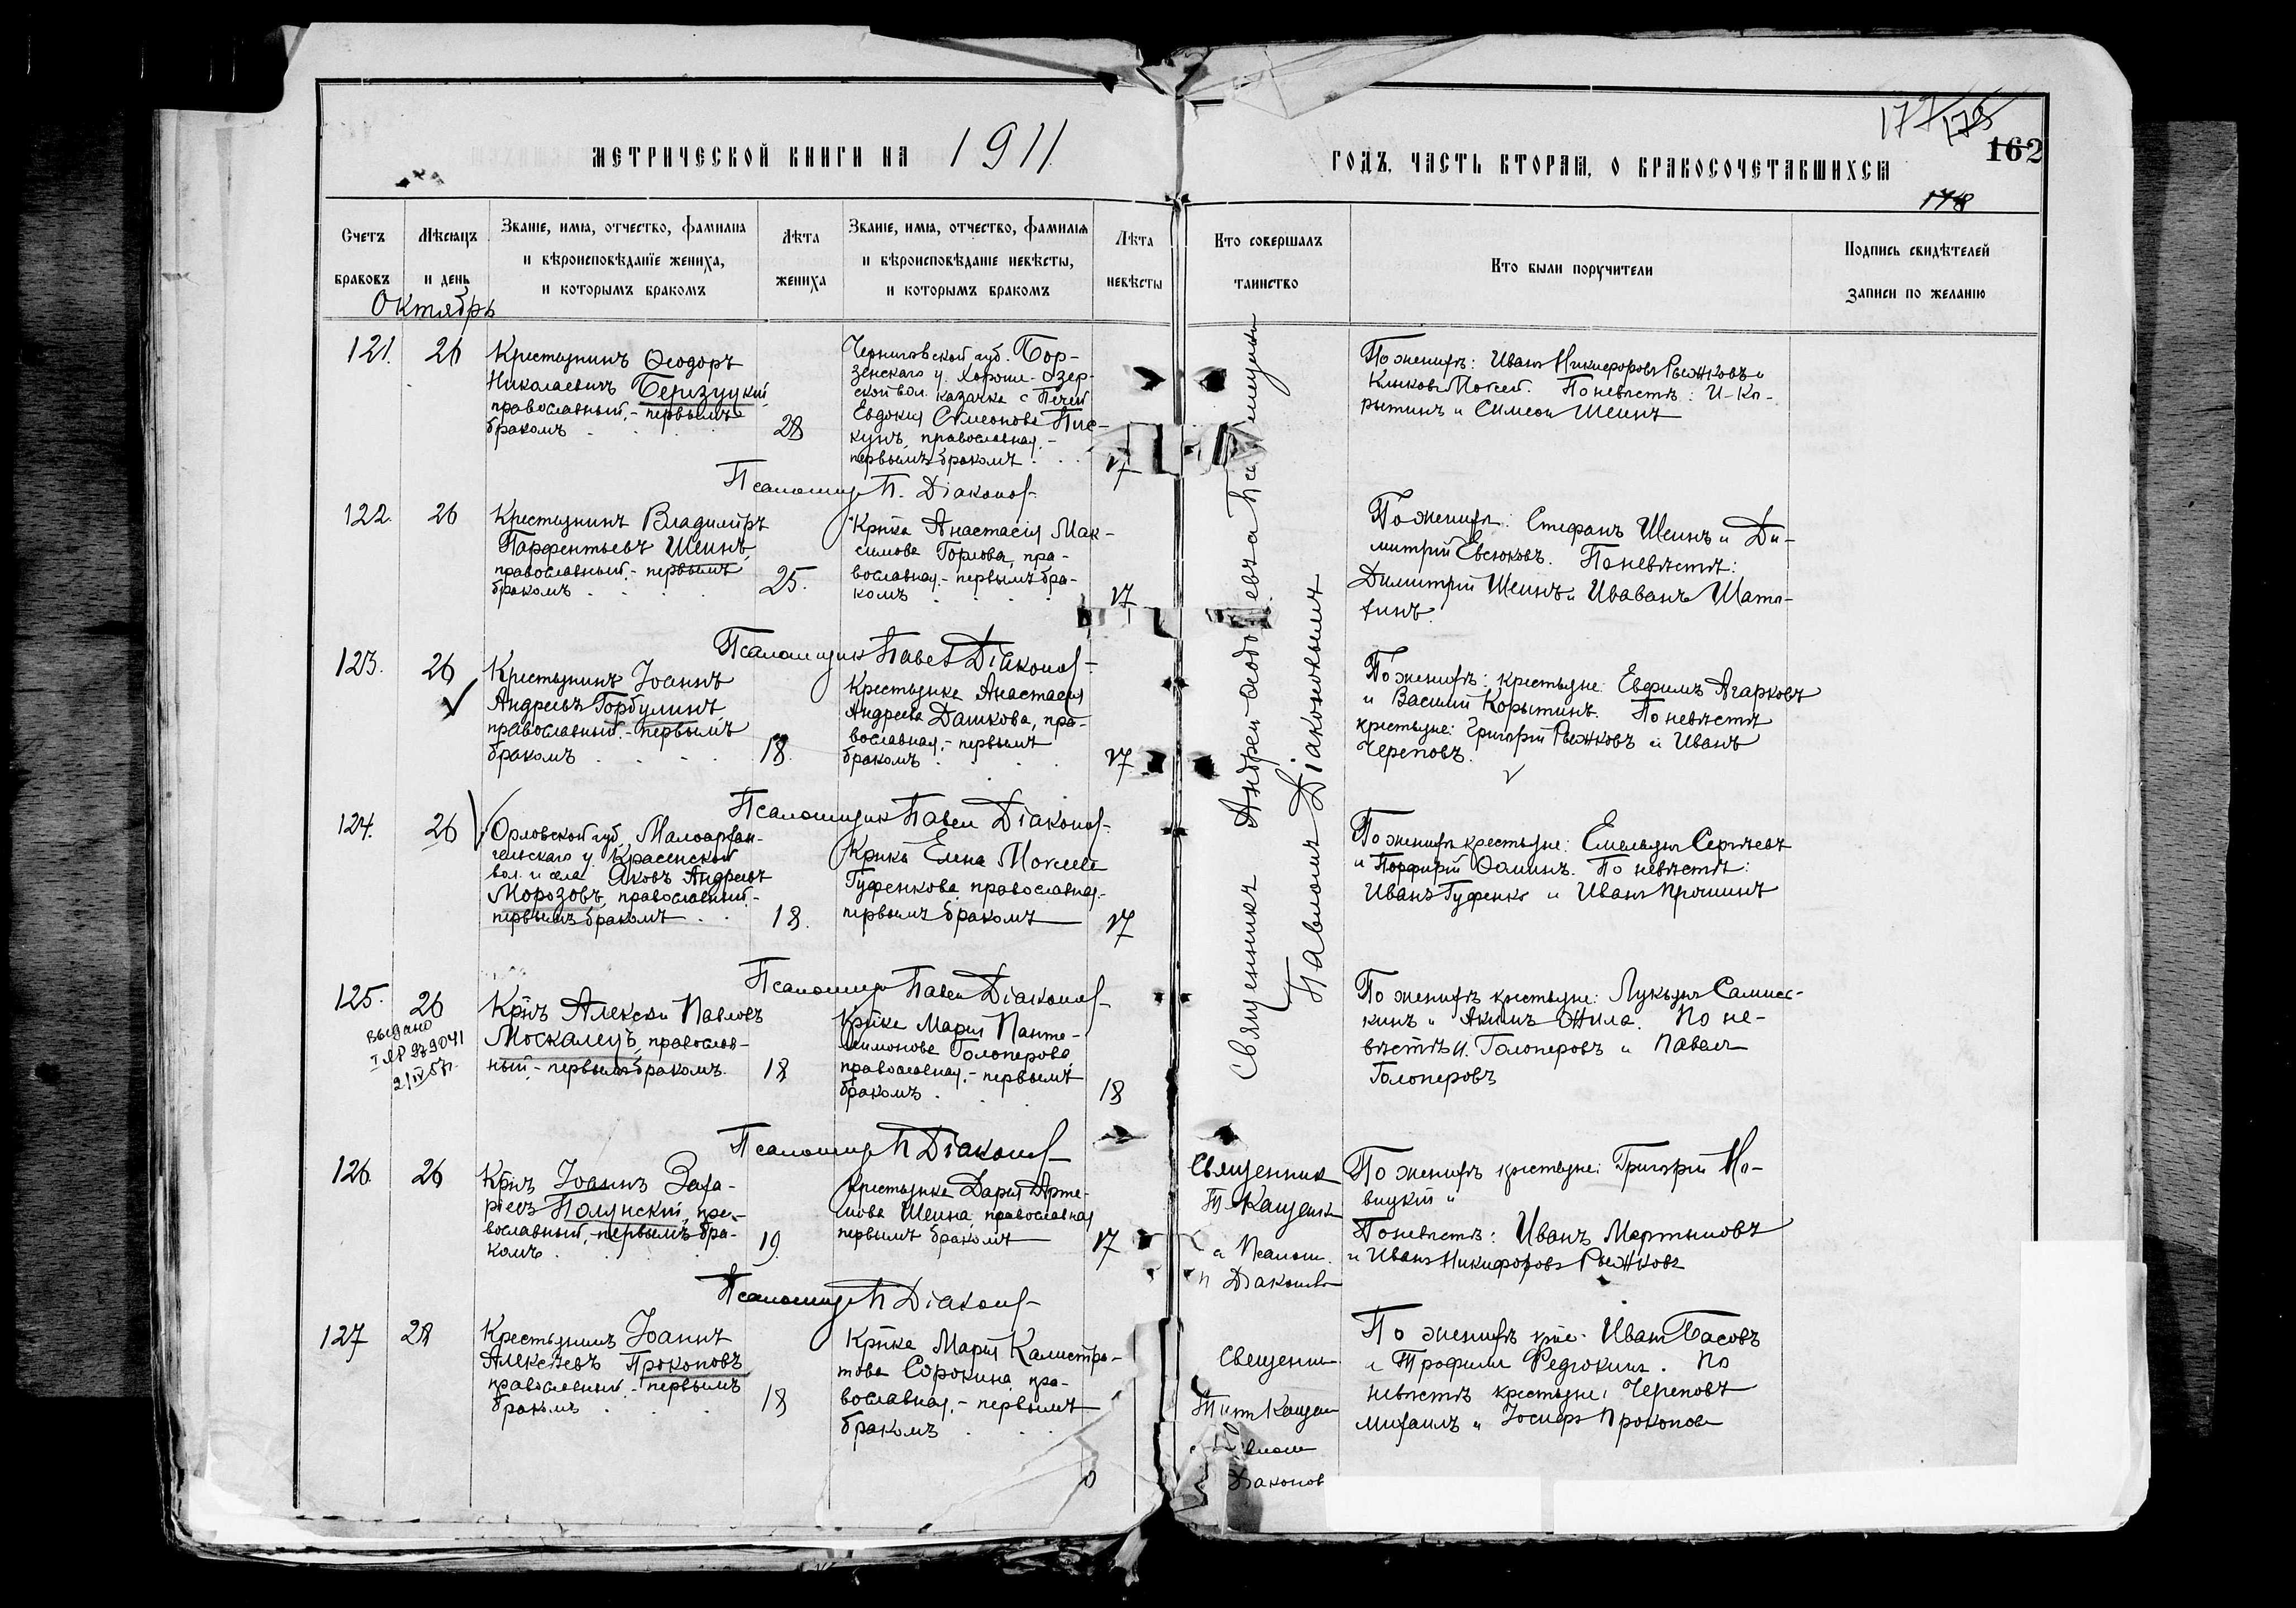 МЕТРИЧЕСКОЙ КНИГИ НА 1911
ГОДЪ, ЧАСТЬ ВТОРАЯ, О БРАКОСОЧЕТАВШИХСЯ
162
178
Счетъ браковъ
Мѣсяцъ и день
Званіе, имя, отчество, фамилія
и вѣроисповѣданіе жениха,
и которымъ бракомъ
Лѣта жениха
Званіе, имя, отчество, фамилія
и вѣроисповѣданіе невѣсты,
и которымъ бракомъ
Лѣта невѣсты
Кто совершалъ
таинство
Кто были поручители
Подпись свидѣтелей
записи по желанію
Октябрь
121. 26
Крестьянинъ Ѳеодоръ
Николаевичъ Беризуцкій
православный, - первымъ
бракомъ
28
Черниговской губ. Бор-
зенскаго у. Хорош-Озер-
ской вол. казачка с Печей
Евдокия Симеонова Пис-
кунъ, православная, -
первымъ бракомъ
17
По женихѣ: Иванъ Никифоровъ Рыжковъ и
Клыковъ Моисей. По невѣстѣ: И. Ко-
рытинъ и Симеон Шеинъ
Псаломщ П. Діаконов
122. 26
Крестьянинъ Владиміръ
Парфентьевъ Шеинъ,
православный, - первымъ
бракомъ
25.
Кр҃нка Анастасія Мак-
симова Горлова, пра-
вославная, - первымъ бра-
комъ
17
По женихѣ: Стефанъ Шеинъ и Ди-
митрий Евсюковъ. По невѣстѣ:
Димитрий Шеинъ и Ивавань Шата-
хинъ.
Псаломщик Павел Діаконов
123. 26
Крестьянинъ Іоаннъ
Андреевъ Горбулинъ
православный, - первымъ
бракомъ
18.
Крестьянка Анастасия
Андреева Дашкова, пра-
вославная, - первымъ
бракомъ
17
По женихѣ: крестьяне: Евфимъ Агарковъ
и Василий Корытинъ. По невѣстѣ
крестьяне: Григорий Рыжковъ и Иванъ
Череповъ.
Псаломщик Павел Діаконов
124. 26
Орловской губ, Малоархан-
гельскаго у. Красенской
вол. и села Яковъ Андреевъ
Морозовъ, православный, -
первымъ бракомъ
18.
Кр҃нка Елена Моисеева
Гуфенкова православная, -
первымъ бракомъ
17
По женихѣ крестьяне: Емельянъ Сергѣевъ
и Порфирий Ѳаминъ. По невѣстѣ:
Иванъ Гуфенко и Иванъ Прошинъ
Псаломщ Павел Діаконов
125. 26
Выдано
I ЯР 979041
2/IV 57г.
Кр҃нъ Алексѣй Павловъ
Москалецъ, православ-
ный, - первымъ бракомъ
18
Кр҃нка Мария Панте-
леимонова Голоперова
православная, - первымъ
бракомъ
18
По женихѣ крестьяне: Лукьянъ Самисс-
кинъ и Акимъ Жила. По не-
вѣстѣ И. Голоперовъ и Павелъ
Голоперовъ
Священникъ Андрей
Павломъ Діаконовымъ
Псаломщ П Діаконов
126. 26
Кр҃нъ Іоаннъ Заха-
ріевъ Полунскій, пра-
вославный, - первымъ бра-
комъ
19.
Крестьянка Дария Арте-
мова Шеина, православная
первымъ бракомъ
17
Священник
Т Кащенк
и Псалом.
П Діаконовъ
По женихѣ крестьяне: Григорий Но-
вицкій и
По невѣстѣ: Иванъ Мартыновъ
и Иванъ Никифоровъ Рыжковъ
Псаломщ П Діаконов
127 28
Крестьянинъ Іоаннъ
Алексѣевъ Прокоповъ
православный, - первымъ
бракомъ
18
Кр҃нка Мария Калистра-
това Сорокина, пра-
вославная, - первымъ
бракомъ
Священни
Титъ Кащен
Діаконов
По женихѣ кре. Иванъ Басовъ
и Трофимъ Редюкинъ. По
невѣстѣ крестьяне: Череповъ
Михаилъ и Іосифъ Прокоповъ